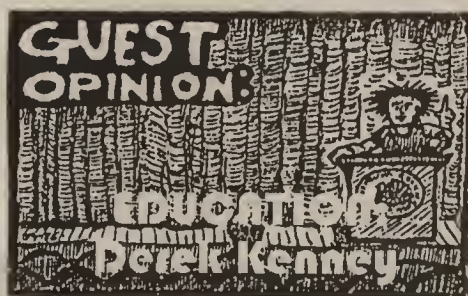 GUEST
OPINION:
EDUCATION:
Derek Kenney